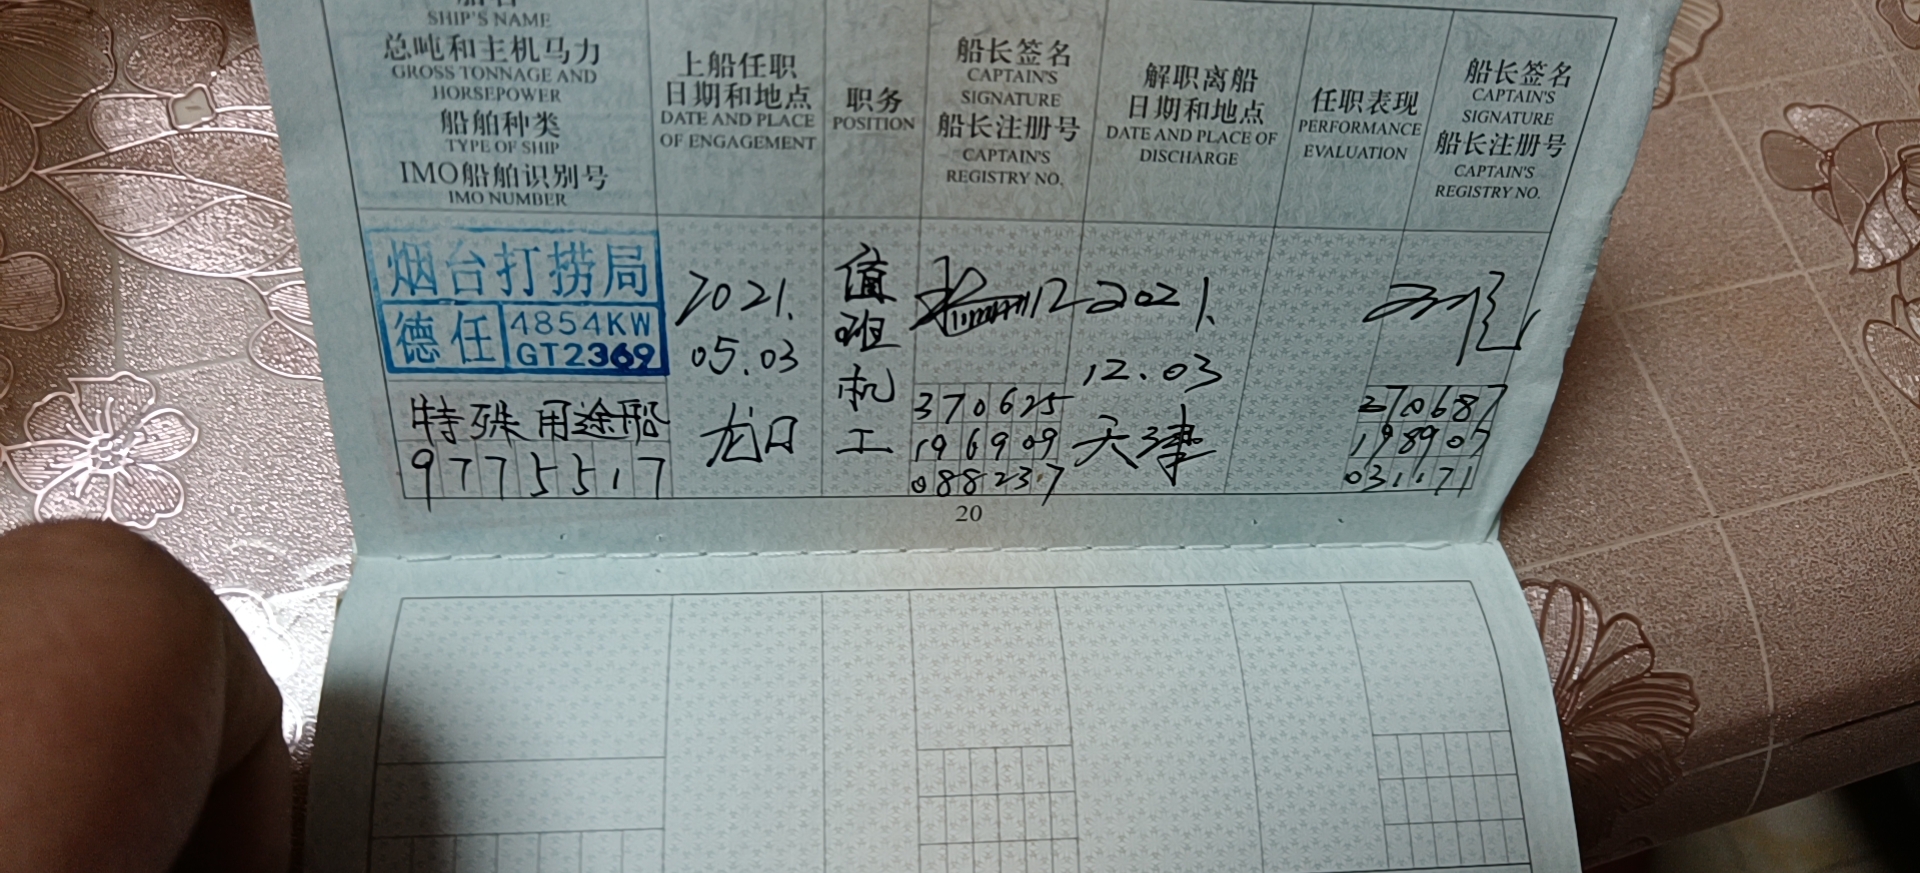 SHIP'S NAME
总吨和主机马力
GROSS TONNAGE AND
HORSEPOWER
船舶种类
TYPE OF SHIP
IMO船舶识别号
IMO NUMBER
上船任职
日期和地点
DATE AND PLACE
OF ENGAGEMENT
职务
POSITION
船长签名
CAPTAIN'S
SIGNATURE
船长注册号
CAPTAIN'S
REGISTRY NO.
解职离船
日期和地点
DATE AND PLACE OF
DISCHARGE
任职表现
PERFORMANCE
EVALUATION
船长签名
CAPTAIN'S
SIGNATURE
船长注册号
CAPTAIN'S
REGISTRY NO.
烟台打捞局
德任
4854KW
GT2369
特殊用途船
9775517
2021.
05.03
龙口
值
班
机
工
370625
196909
088237
2021.
12.03
天津
370687
198907
031171
20